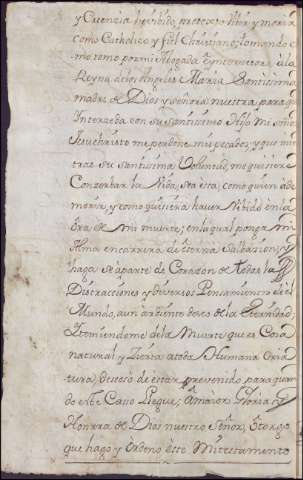 y Creencia he vivido, protexto vivir y morir
como Catholico y fiel Christiano; tomando co
mo tomo por mi Abogada e Yntercesora a la
Reyna de los Angeles Maria Santissima
madre de Dios y Señora nuestra, para que
Interzeda con su Santissimo Hijo mi señor
Jesuchristo me perdone mis pecados; y que mien
tras su Santissima Voluntad, me quisiere
Conzerbar la Vida, sea esta, como quien a de
morir, y como quisiera haver vivido en la
Ora de mi muerte; en la qual ponga mi
Alma en carrera de eterna Salbasion, y
haga se aparte de Corazon de todas las
Distracciones y diversos Pensamientos de el
Mundo, a un ardiente deseo de la Eternidad;
Y temiendome de la Muerte que es Cosa
natural y Zierta a toda Humana Cria
tura; deseoso de estar prevenido para quan
do este Caso llegue; A maior Gloria y
Honrra de Dios nuestro Señor, Otorgo
que hago y Ordeno este mi testamento